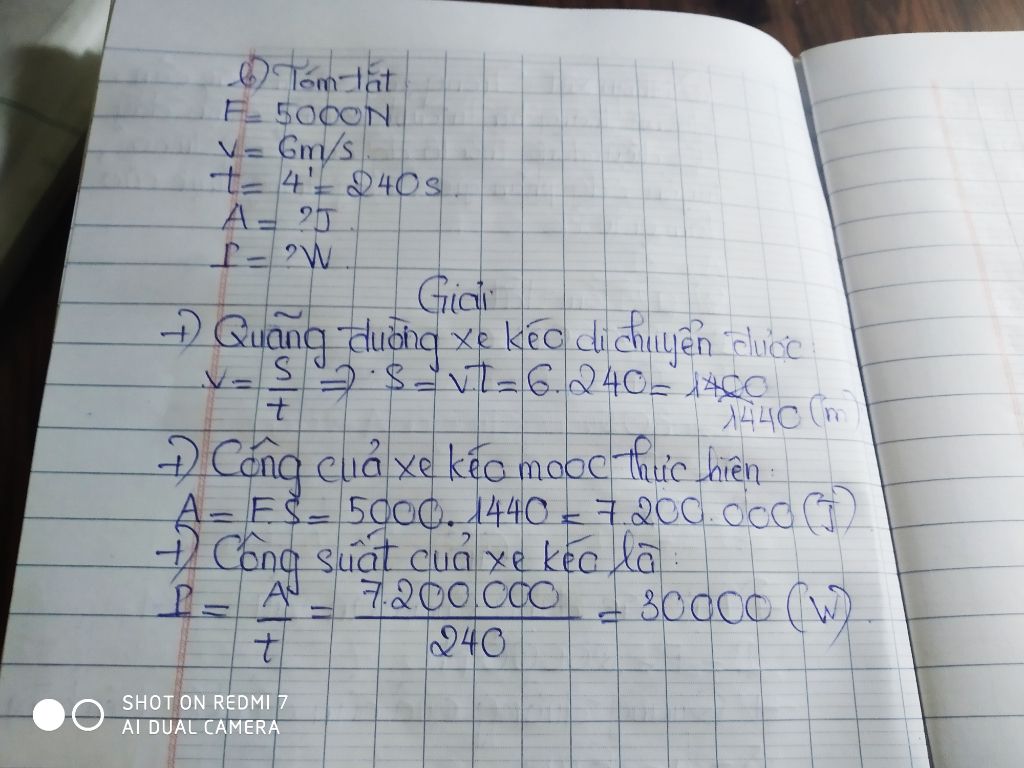 6) Tóm tắt
F = 5000N
v = 6m/s.
t = 4' = 240s.
A = ?J.
P = ?W.
Giải
+) Quãng đường xe kéo di chuyển được:
v = S/t => S = vt = 6.240 =
1440 (m)
+) Công của xe kéo mooc thực hiện:
A = F.S = 5000.1440 = 7.200.000 (J)
+) Công suất của xe kéo là:
P = A/t = 7.200.000/240 = 30000 (W).
SHOT ON REDMI 7
AI DUAL CAMERA